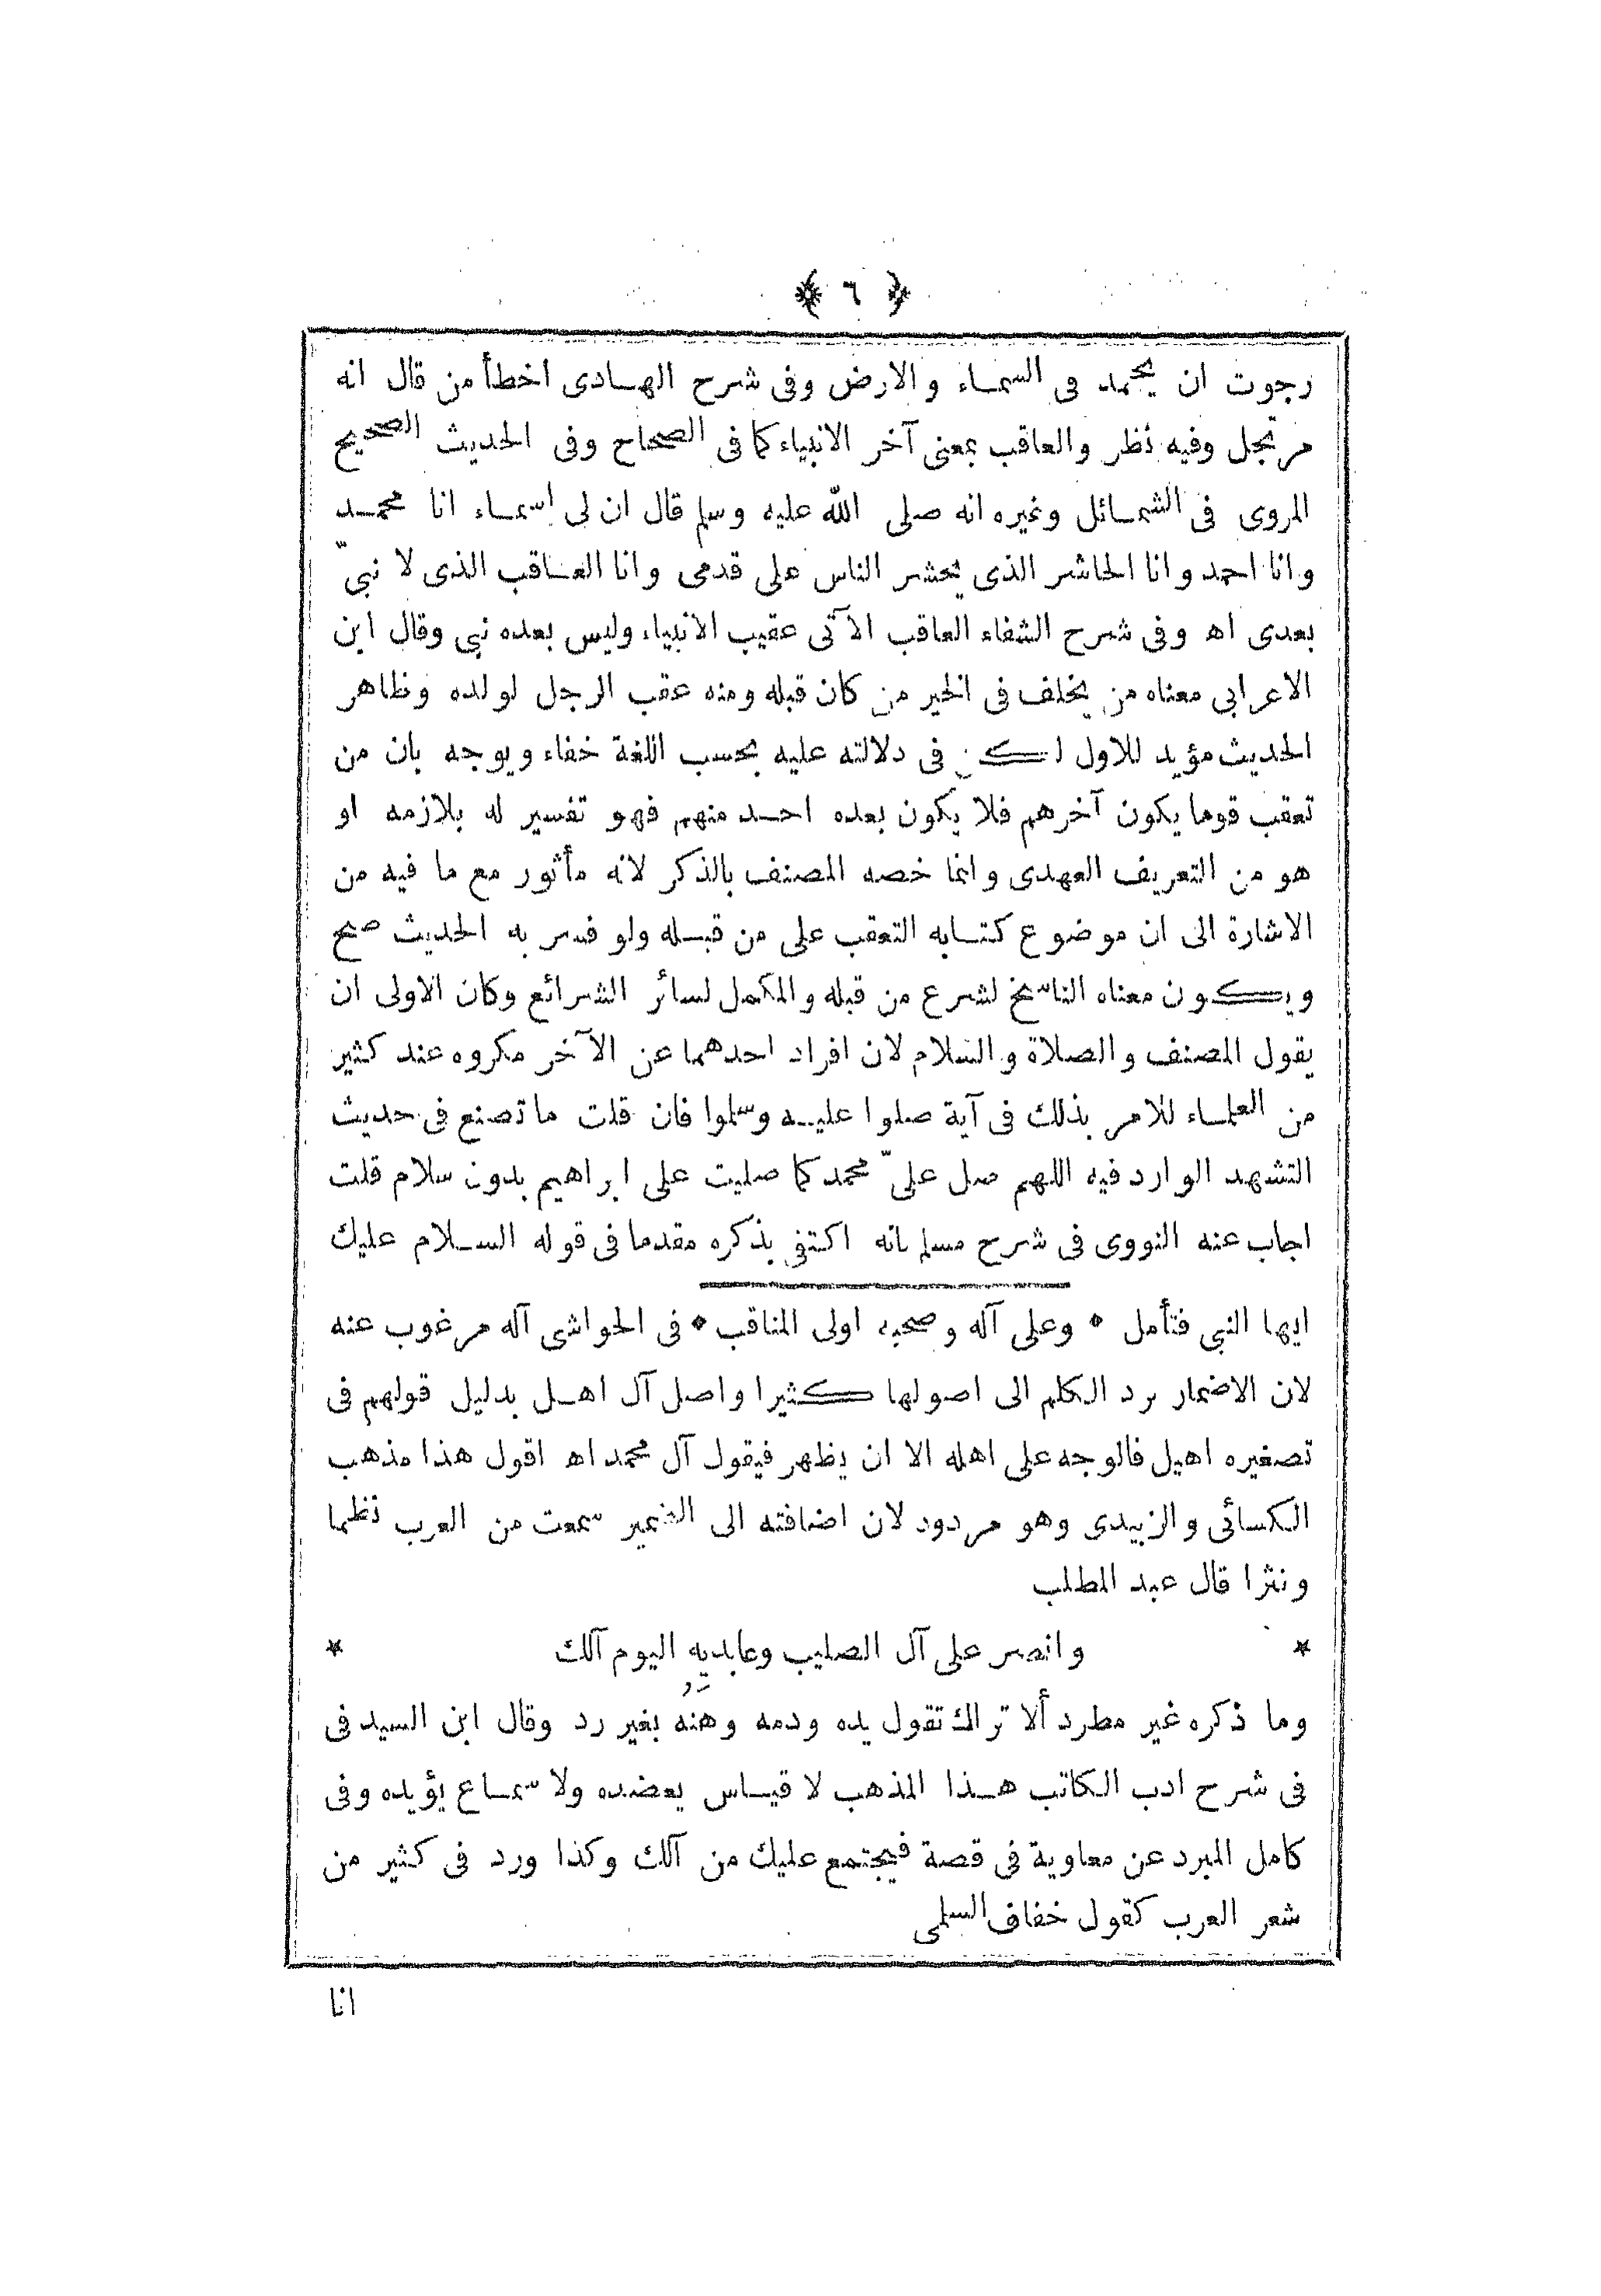 ﴿ ٦ ﴾
رجوت ان يحمد فى السماء والارض وفى شرح الهادى اخطأ من قال انه
مرتجل وفيه نظر والعاقب بمعنى آخر الانبياء كما فى الصحاح وفى الحديث الصحيح
المروى فى الشمائل وغيره انه صلى الله عليه وسلم قال ان لى اسماء انا محمد
وانا احمد وانا الحاشر الذى يحشر الناس على قدمى وانا العاقب الذى لا نبىّ
بعدى اه وفى شرح الشفاء العاقب الآتى عقيب الانبياء وليس بعده نبى وقال ابن
الاعرابى معناه من يخلف فى الخير من كان قبله ومنه عقب الرجل لولده وظاهر
الحديث مؤيد للاول لكن فى دلالته عليه بحسب اللغة خفاء ويوجه بان من
تعقب قوما يكون آخرهم فلا يكون بعده احد منهم فهو تفسير له بلازمه او
هو من التعريف العهدى وانما خصه المصنف بالذكر لانه مأثور مع ما فيه من
الاشارة الى ان موضوع كتابه التعقب على من قبله ولو فسر به الحديث صح
ويكون معناه الناسخ لشرع من قبله والمكمل لسائر الشرائع وكان الاولى ان
يقول المصنف والصلاة والسلام لان افراد احدهما عن الآخر مكروه عند كثير
من العلماء للامر بذلك فى آية صلوا عليه وسلموا فان قلت ما تصنع فى حديث
التشهد الوارد فيه اللهم صل علىّ محمد كما صليت على ابراهيم بدون سلام قلت
اجاب عنه النووى فى شرح مسلم بانه اكتفى بذكره مقدما فى قوله السلام عليك
ايها النبى فتأمل * وعلى آله وصحبه اولى المناقب * فى الحواشى آله مرغوب عنه
لان الاضمار يرد الكلم الى اصولها كثيرا واصل آل اهل بدليل قولهم فى
تصغيره اهيل فالوجه على اهله الا ان يظهر فيقول آل محمد اه اقول هذا مذهب
الكسائى والزبيدى وهو مردود لان اضافته الى الضمير سمعت من العرب نظما
ونثرا قال عبد المطلب
* وانصر على آل الصليب وعابديه اليوم آلك *
وما ذكره غير مطرد ألا تراك تقول يده ودمه وهنُه بغير رد وقال ابن السيد فى
فى شرح ادب الكاتب هذا المذهب لا قياس يعضده ولا سماع يؤيده وفى
كامل المبرد عن معاوية فى قصة فيجتمع عليك من آلك وكذا ورد فى كثير من
شعر العرب كقول خفاف السلمى
انا